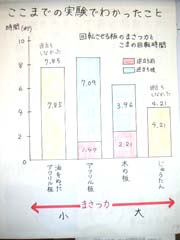 ここまでの実験でわかったこと
時間(秒)
回転させる板のまさつ力と
こまの回転時間
10
8
6
4
2
0
7.85
7.09
3.96
2.21
4.21
4.21
7.85
油をぬった
アクリル板
アクリル板
木の板
じゅうたん
まさつ力
小
大